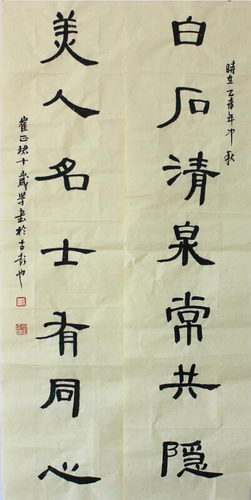 時在乙年中秋
白石清泉常共隐
美人名士有同心
崔正十歲學書於古彭